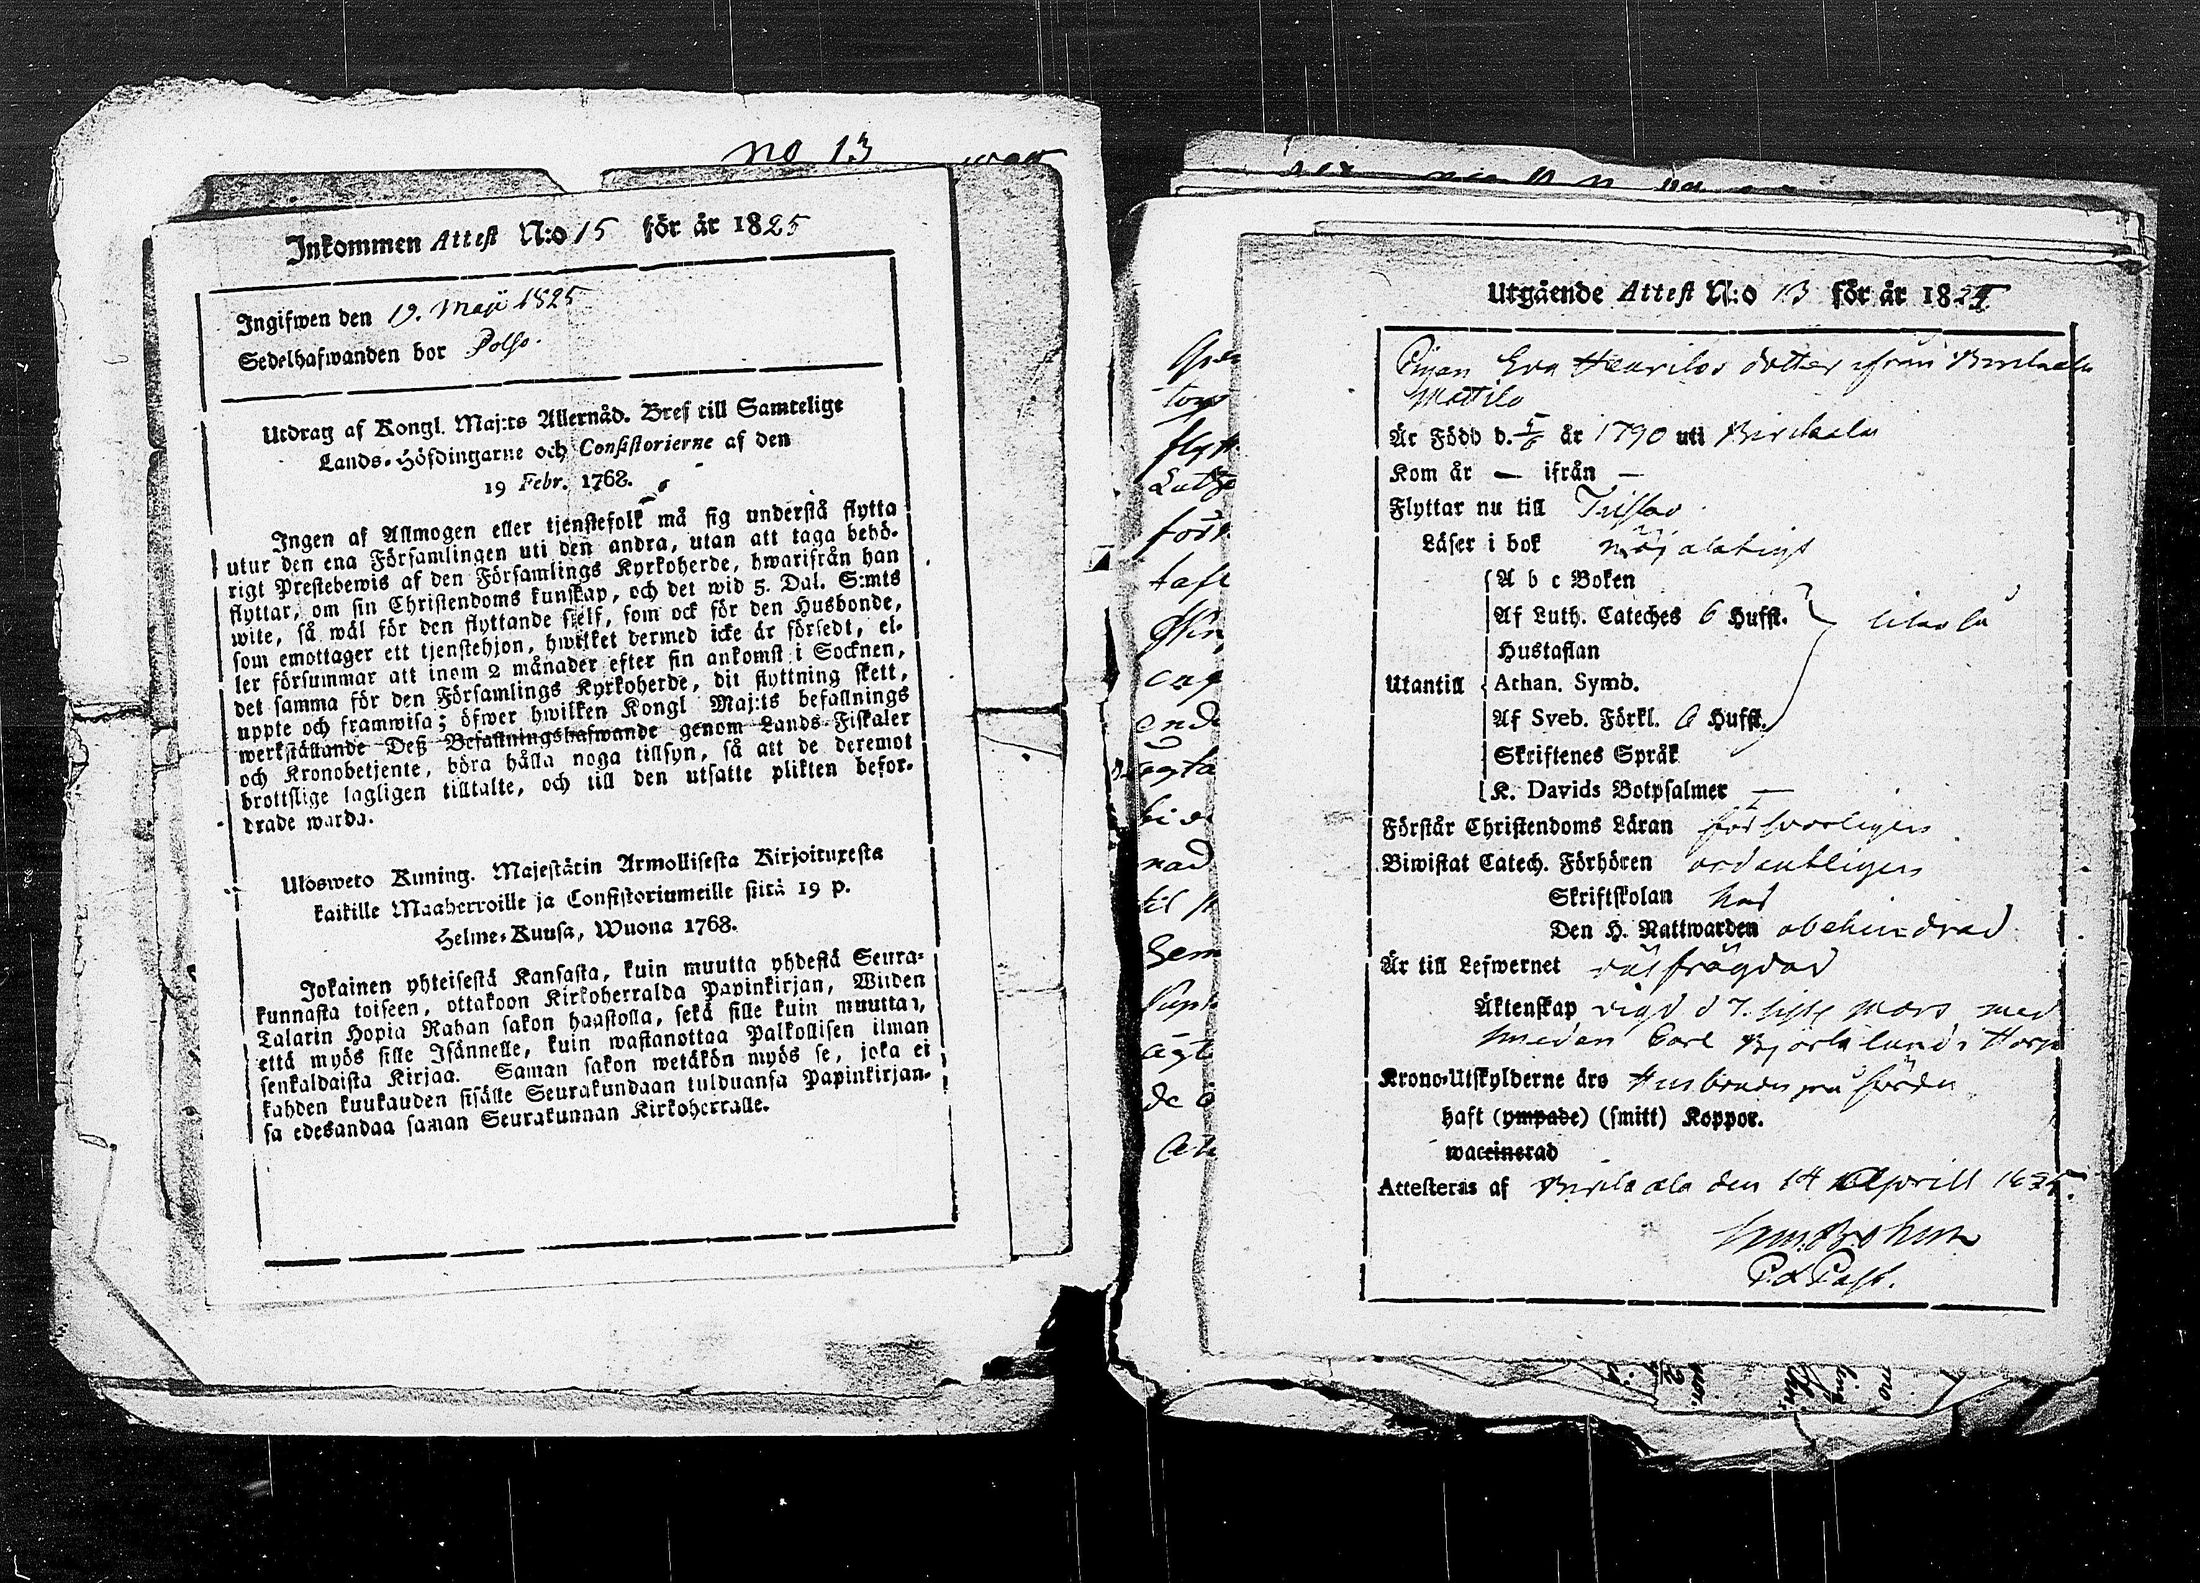 no 13
Inkommen Attest N:o 15 för år 1825
Ingifwen den 19. Maji 1825
Sedelhafwanden bor Polso.
Utdrag af Kongl. Maj:ts Allernåd. Bref till Samtelige
Lands-Höfdingarne och Consistorierne af den
19 Febr. 1768.
Ingen af Allmogen eller tjenstefolk må sig understå flytta
utur den ena Församlingen uti den andra, utan att taga behö-
rigt Prestebewis af den Församlings Kyrkoherde, hwarifrån han
flyttar, om sin Christendoms kunskap, och det wid 5. Dal. S:mts
wite, så wäl för den flyttande sjelf, som ock för den Husbonde,
som emottager ett tjenstehjon, hwilket dermed icke är försedt, el-
ler försummar att inom 2 månader efter sin ankomst i Socknen,
det samma för den Församlings Kyrkoherde, dit flyttning skett,
uppte och framwisa; öfwer hwilken Kongl Maj:ts befallnings
werkställande Deß Befallningshafwande genom Lands-Fiskaler
och Kronobetjente, böra hålla noga tillsyn, så att de deremot
brottslige lagligen tilltalte, och till den utsatte plikten befor-
drade warda.
Ulosweto Kuning. Majestätin Armollisesta Kirjoituxesta
kaikille Maaherroille ja Consistoriumeille siitä 19 p.
Helme-Kuusa, Wuona 1768.
Jokainen yhteisestä Kansasta, kuin muutta yhdestä Seura-
kunnasta toiseen, ottakoon Kirkoherralda Papinkirjan, Wiiden
Talarin Hopia Rahan sakon haastolla, sekä sille kuin muuttaa,
että myös sille Isännelle, kuin wastanottaa Palkollisen ilman
senkaldaista Kirjaa. Saman sakon wetäkön myös se, joka ei
kahden kuukauden sisälle Seurakundaan tulduansa Papinkirjan-
sa edesandaa saman Seurakunnan Kirkoherralle.
Utgående Attest N:o 13 för år 1825
Pigan Eva Henriks dotter ifrån Birckala
Mattila
Är Född d. 5/6 år 1790 uti Birckala
Kom år — ifrån —
Flyttar nu till
Läser i bok nöjaktigt
A b c Boken
Af Luth. Cateches 6 Hufst.
Hustaflan
Utantill Athan. Symb.
Af Sveb. Förkl. 6 Hufst.
Skriftenes Språk
K. Davids Botpsalmer —
Förstår Christendoms Läran försvarligen
Biwistat Catech. Förhören ordentligen
Skriftskolan
Den H. Nattwarden obehindrad
Är till Lefwernet välfrägdad
Äktenskap vigd d 7. sistl. Mars med
Smeden Carl Björklund i
Krono-Utskylderne års
haft (ympade) (smitt) Koppor.
waccinerad
Attesteras af Birckala den 14 Aprill 1825.
P.L. Past.